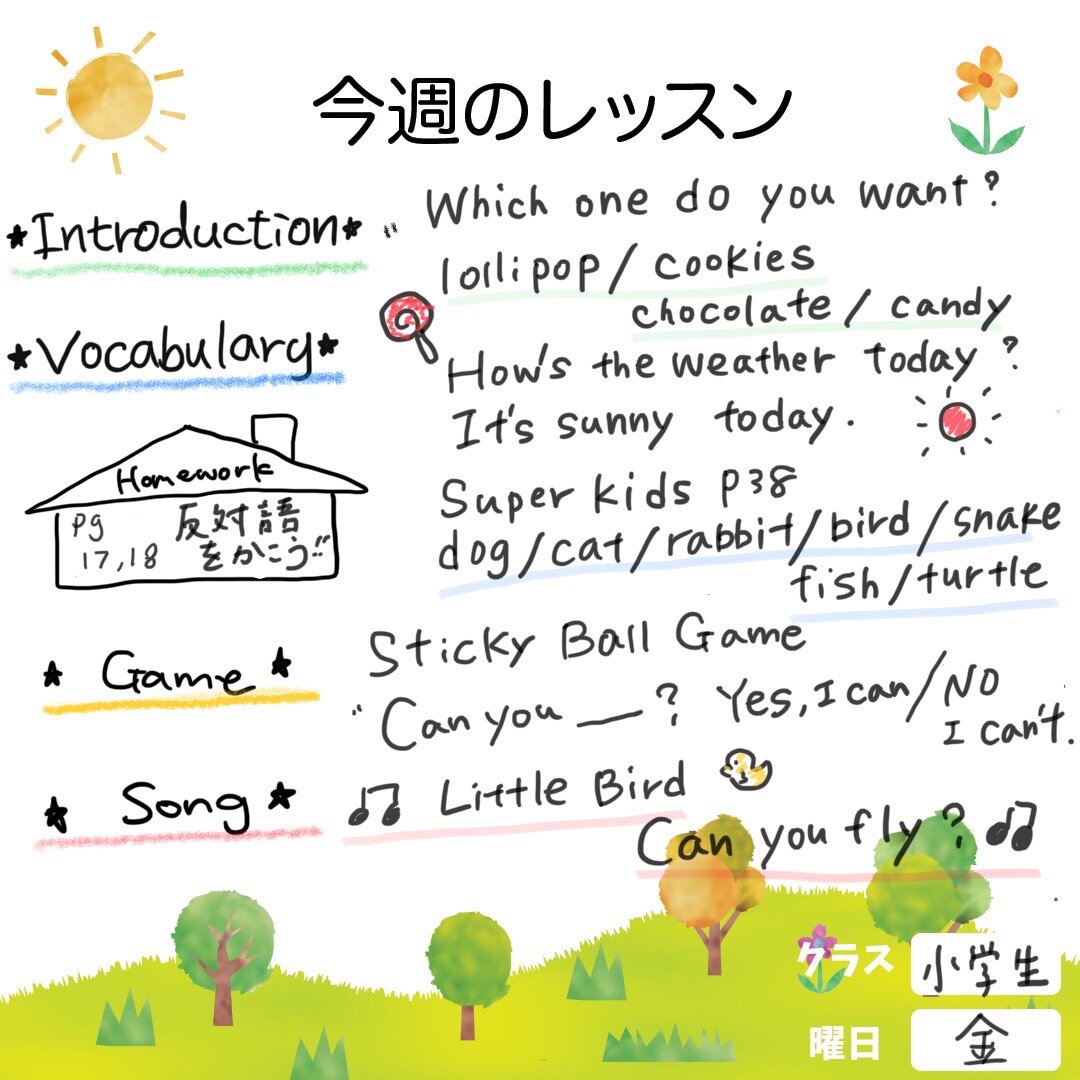 今週のレッスン
★Introduction★ " Which one do you want?
lollipop / cookies
chocolate / candy
★Vocabulary★
How's the weather today?
It's sunny today.
Homework
pg 17,18 反対語をかこう!!
Super kids P38
dog/cat/rabbit/bird/snake
fish/turtle
★ Game ★ Sticky Ball Game
"Can you __? Yes, I can/NO
I can't.
★ Song ★ ♫ Little Bird
Can you fly? ♫
クラス 小学生
曜日 金